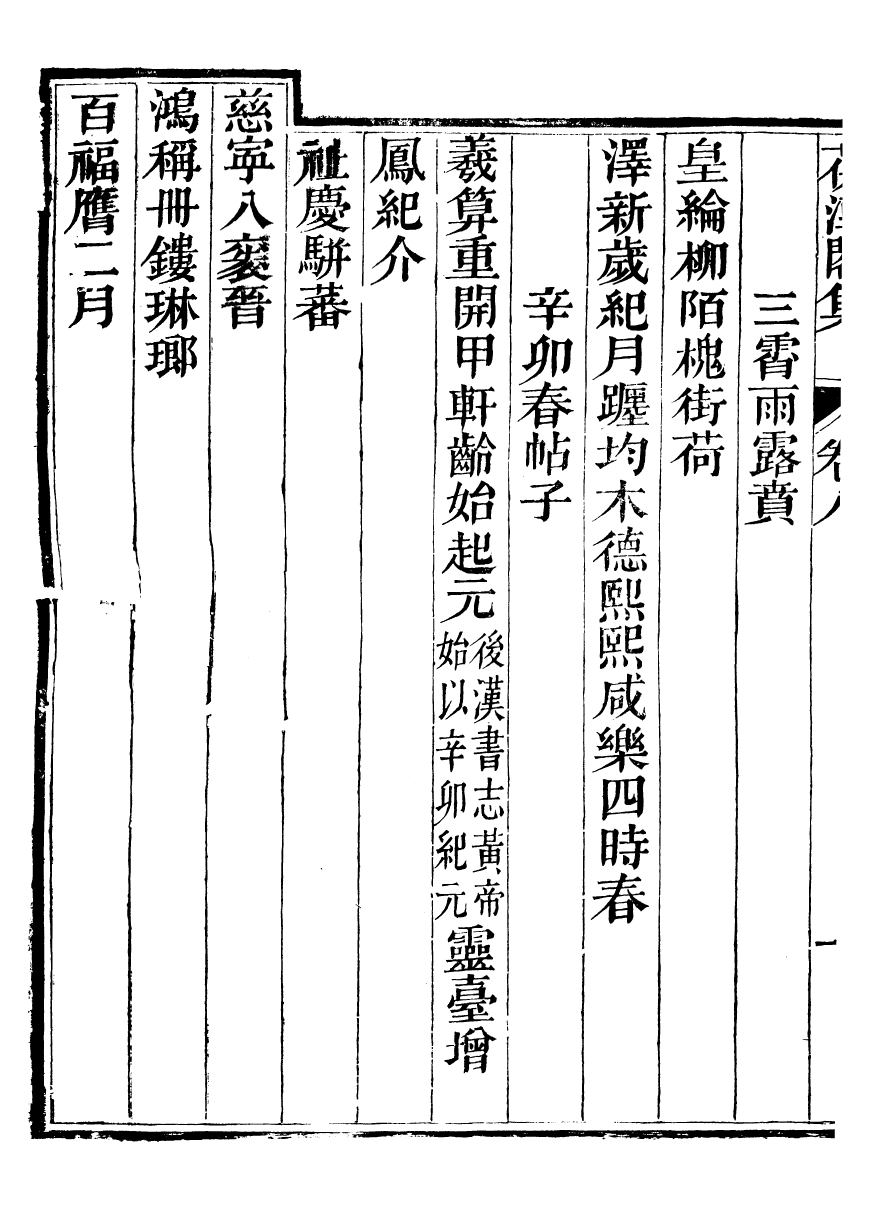 集 卷八 一
三霄雨露賁
皇綸柳陌槐街荷
澤新歲紀月躔均木德熙熙咸樂四時春
辛卯春帖子
羲算重開甲軒齡始起元後漢書志黃帝始以辛卯紀元靈臺增
鳳紀介
祉慶駢蕃
慈寧八袠晉
鴻稱冊鏤琳瑯
百福膺二月